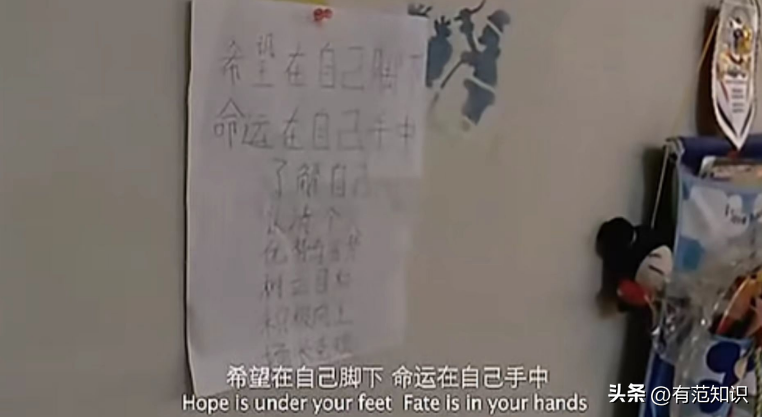 希望在自己脚下
命运在自己手中
了解自己
树立目标
积极向上
希望在自己脚下 命运在自己手中
Hope is under your feet Fate is in your hands
头条 @有范知识